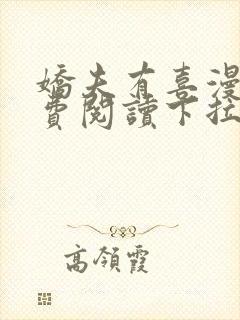 嬌夫有喜漫
費閱讀下拉
高領霞